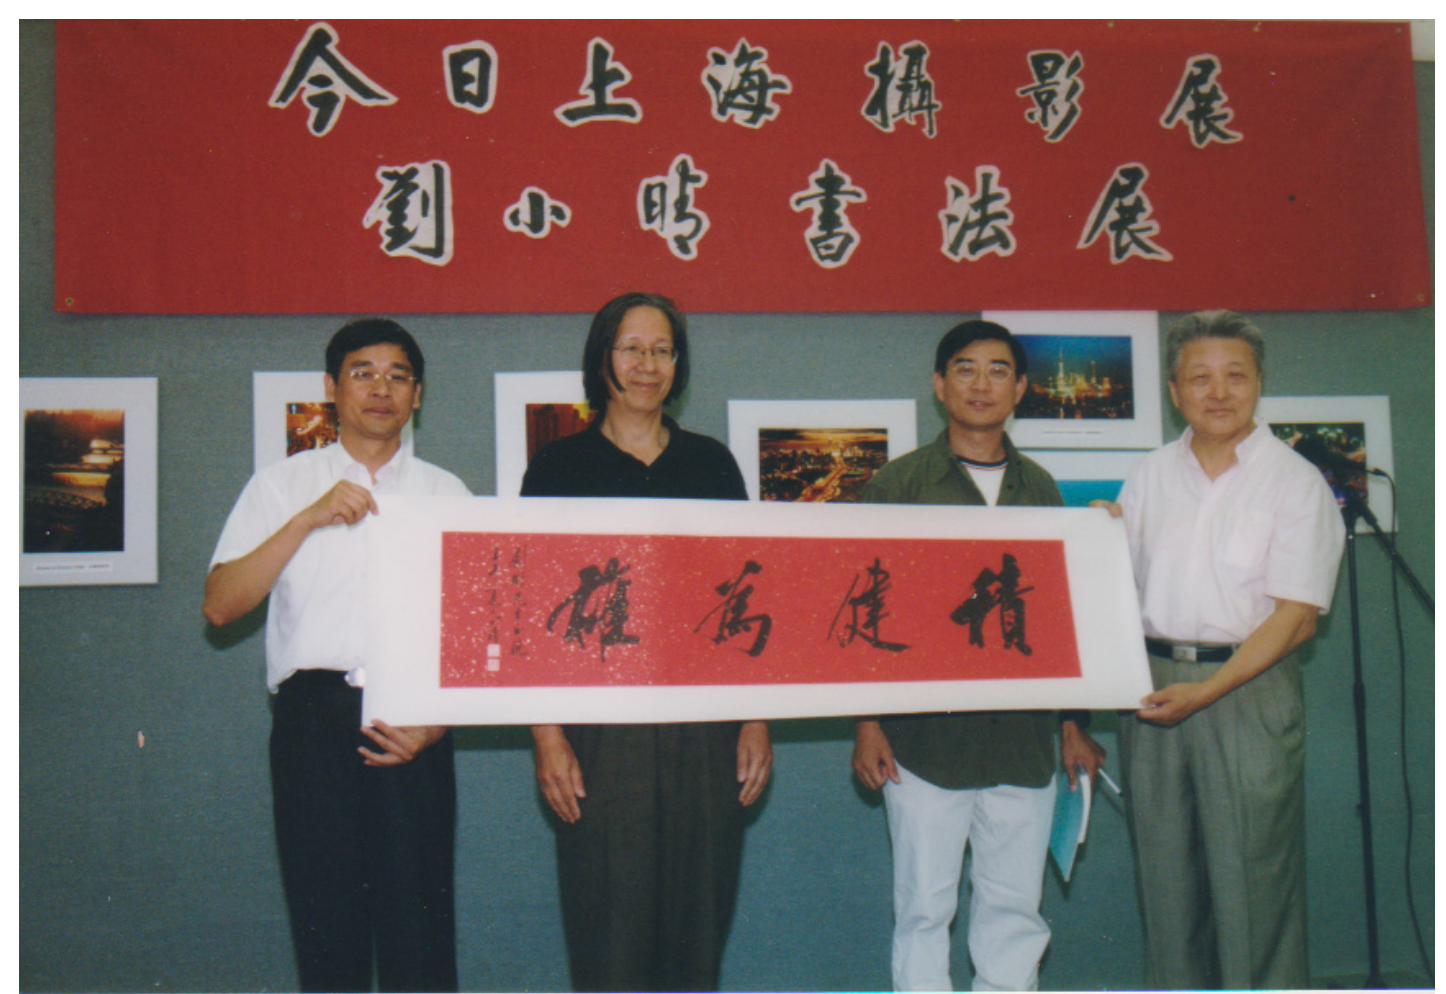 今日上海攝影展
劉小晴書法展
積健為雄